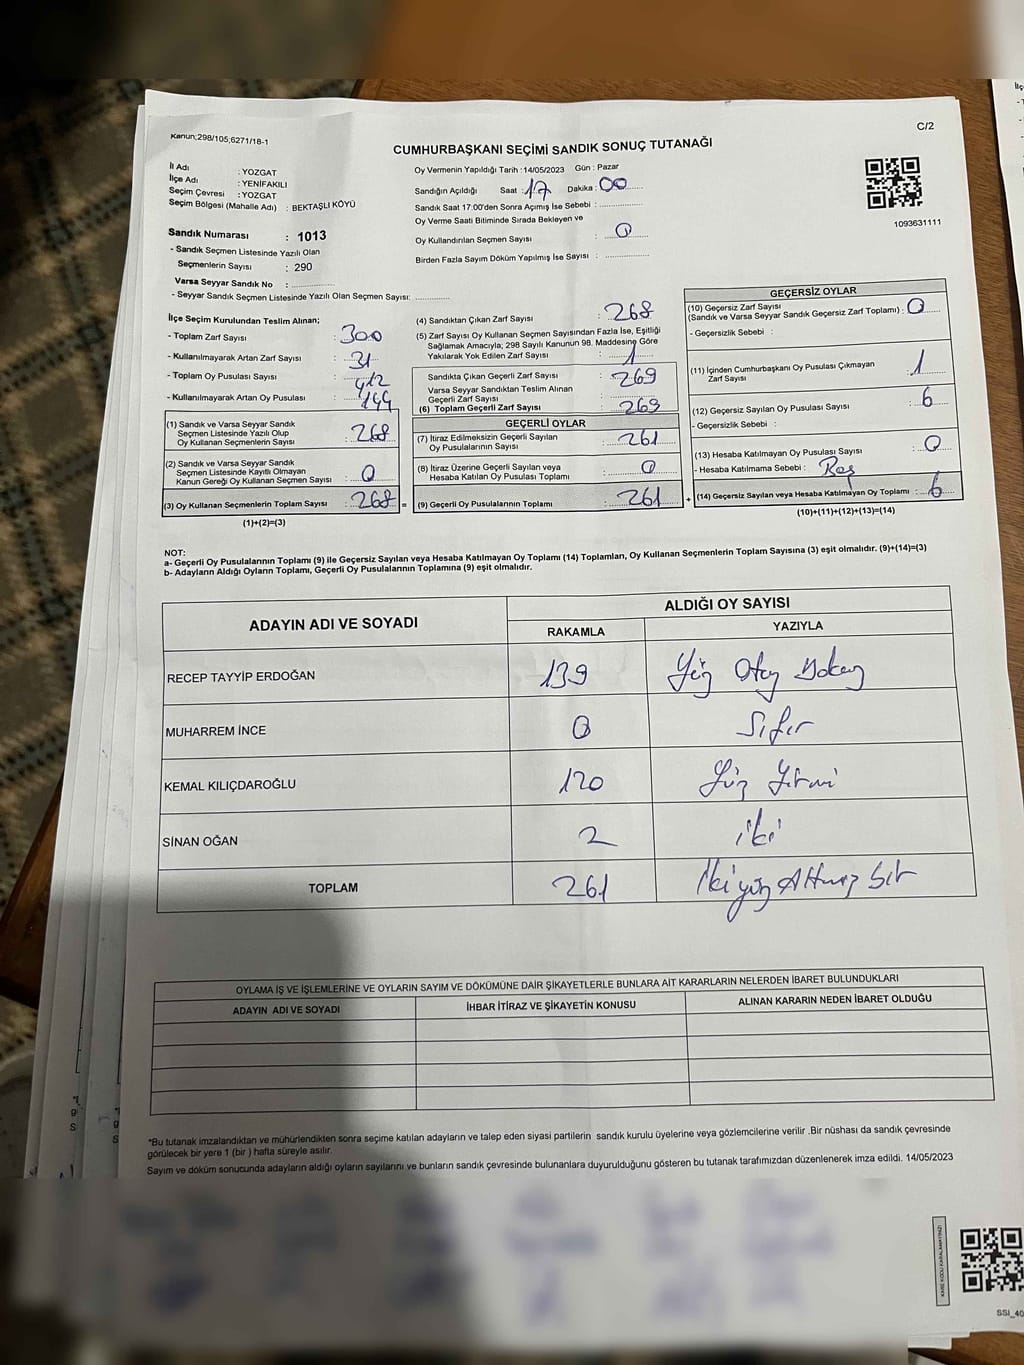 Kanun;298/105;6271/18-1
C/2
CUMHURBAŞKANI SEÇİMİ SANDIK SONUÇ TUTANAĞI
İl Adı : YOZGAT
İlçe Adı : YENİFAKILI
Seçim Çevresi : YOZGAT
Seçim Bölgesi (Mahalle Adı) : BEKTAŞLI KÖYÜ
Sandık Numarası : 1013
- Sandık Seçmen Listesinde Yazılı Olan
Seçmenlerin Sayısı : 290
Varsa Seyyar Sandık No :
- Seyyar Sandık Seçmen Listesinde Yazılı Olan Seçmen Sayısı:
Oy Vermenin Yapıldığı Tarih : 14/05/2023 Gün : Pazar
Sandığın Açıldığı Saat : 17 Dakika : 00
Sandık Saat 17:00'den Sonra Açımış İse Sebebi :
Oy Verme Saati Bitiminde Sırada Bekleyen ve
Oy Kullandırılan Seçmen Sayısı : 0
Birden Fazla Sayım Döküm Yapılmış İse Sayısı :
1093631111
İlçe Seçim Kurulundan Teslim Alınan;
- Toplam Zarf Sayısı : 300
- Kullanılmayarak Artan Zarf Sayısı : 31
- Toplam Oy Pusulası Sayısı : 412
- Kullanılmayarak Artan Oy Pusulası : 144
(1) Sandık ve Varsa Seyyar Sandık
Seçmen Listesinde Yazılı Olup
Oy Kullanan Seçmenlerin Sayısı : 268
(2) Sandık ve Varsa Seyyar Sandık
Seçmen Listesinde Kayıtlı Olmayan
Kanun Gereği Oy Kullanan Seçmen Sayısı : 0
(3) Oy Kullanan Seçmenlerin Toplam Sayısı : 268 =
(1)+(2)=(3)
(4) Sandıktan Çıkan Zarf Sayısı : 268
(5) Zarf Sayısı Oy Kullanan Seçmen Sayısından Fazla İse, Eşitliği
Sağlamak Amacıyla; 298 Sayılı Kanunun 98. Maddesine Göre
Yakılarak Yok Edilen Zarf Sayısı : 1
Sandıkta Çıkan Geçerli Zarf Sayısı : 269
Varsa Seyyar Sandıktan Teslim Alınan
Geçerli Zarf Sayısı :
(6) Toplam Geçerli Zarf Sayısı : 269
GEÇERLİ OYLAR
(7) İtiraz Edilmeksizin Geçerli Sayılan
Oy Pusulalarının Sayısı : 261
(8) İtiraz Üzerine Geçerli Sayılan veya
Hesaba Katılan Oy Pusulası Toplamı : 0
(9) Geçerli Oy Pusulalarının Toplamı : 261 +
GEÇERSİZ OYLAR
(10) Geçersiz Zarf Sayısı
(Sandık ve Varsa Seyyar Sandık Geçersiz Zarf Toplamı) : 0
- Geçersizlik Sebebi :
(11) İçinden Cumhurbaşkanı Oy Pusulası Çıkmayan
Zarf Sayısı : 1
(12) Geçersiz Sayılan Oy Pusulası Sayısı : 6
- Geçersizlik Sebebi :
(13) Hesaba Katılmayan Oy Pusulası Sayısı : 0
- Hesaba Katılmama Sebebi : Boş
(14) Geçersiz Sayılan veya Hesaba Katılmayan Oy Toplamı : 6
(10)+(11)+(12)+(13)=(14)
NOT:
a- Geçerli Oy Pusulalarının Toplamı (9) ile Geçersiz Sayılan veya Hesaba Katılmayan Oy Toplamı (14) Toplamları, Oy Kullanan Seçmenlerin Toplam Sayısına (3) eşit olmalıdır. (9)+(14)=(3)
b- Adayların Aldığı Oyların Toplamı, Geçerli Oy Pusulalarının Toplamına (9) eşit olmalıdır.
ADAYIN ADI VE SOYADI
ALDIĞI OY SAYISI
RAKAMLA YAZIYLA
RECEP TAYYİP ERDOĞAN 139 Yüz Otuz Dokuz
MUHARREM İNCE 0 Sıfır
KEMAL KILIÇDAROĞLU 120 Yüz Yirmi
SİNAN OĞAN 2 iki
TOPLAM 261 İkiyüz Altmış bir
OYLAMA İŞ VE İŞLEMLERİNE VE OYLARIN SAYIM VE DÖKÜMÜNE DAİR ŞİKAYETLERLE BUNLARA AİT KARARLARIN NELERDEN İBARET BULUNDUKLARI
ADAYIN ADI VE SOYADI İHBAR İTİRAZ VE ŞİKAYETİN KONUSU ALINAN KARARIN NEDEN İBARET OLDUĞU
*Bu tutanak imzalandıktan ve mühürlendikten sonra seçime katılan adayların ve talep eden siyasi partilerin sandık kurulu üyelerine veya gözlemcilerine verilir .Bir nüshası da sandık çevresinde
görülecek bir yere 1 (bir ) hafta süreyle asılır.
Sayım ve döküm sonucunda adayların aldığı oyların sayılarını ve bunların sandık çevresinde bulunanlara duyurulduğunu gösteren bu tutanak tarafımızdan düzenlenerek imza edildi. 14/05/2023
KARE KODU KARALAMAYINIZ!
SSI_40